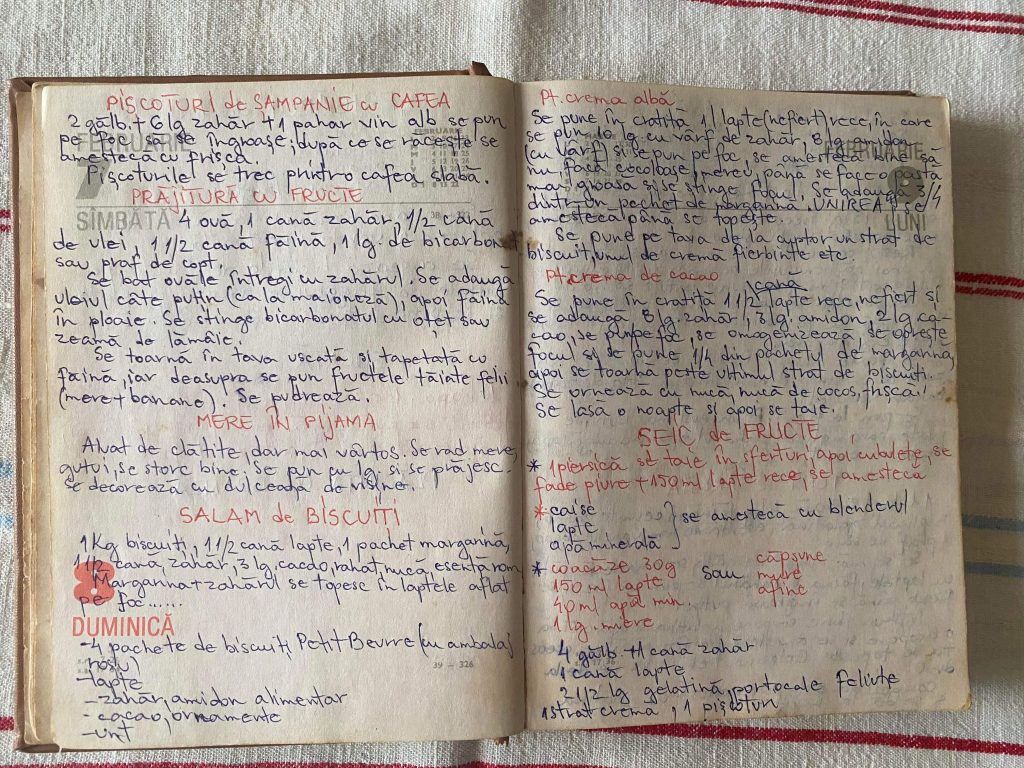 PIȘCOTURI de ȘAMPANIE cu CAFEA
2 gălb. + 6 lg zahăr + 1 pahar vin alb se pun
pe foc să se îngroașe; după ce se răcește se
amestecă cu frișcă.
Pișcoturile se trec printr-o cafea slabă.
FEBRUARIE
7
SÎMBĂTĂ
PRĂJITURĂ CU FRUCTE
4 ouă, 1 cană zahăr, 1/2 cană
de ulei, 1 1/2 cană făină, 1 lg. de bicarbonat
sau praf de copt.
Se bat ouăle întregi cu zahărul. Se adaugă
uleiul câte puțin (ca la maioneză), apoi făina
în ploaie. Se stinge bicarbonatul cu oțet sau
zeamă de lămâie.
Se toarnă în tava uscată și tapetată cu
făină, iar deasupra se pun fructele tăiate felii
(mere + banane). Se pudrează.
MERE ÎN PIJAMA
Aluat de clătite, dar mai vârtos. Se rad mere,
gutui, se storc bine. Se pun cu lg. și se prăjesc.
Se decorează cu dulceață de vișine.
SALAM de BISCUIȚI
1 Kg biscuiți, 1 1/2 cană lapte, 1 pachet margarină,
1 1/2 cană zahăr, 3 lg. cacao, rahat, nucă, esență rom
Margarina + zahărul se topesc în laptele aflat
pe foc......
8
DUMINICĂ
- 4 pachete de biscuiți Petit Beurre (cu ambalaj
roșu)
- lapte
- zahăr, amidon alimentar
- cacao, ornamente
- unt
39 - 326
Pt. crema albă
Se pune în cratiță 1 l lapte (nefiert) rece, în care
se pun 10 lg. cu vârf de zahăr, 8 lg amidon
(cu vârf) și se pun pe foc, se amestecă bine să
nu facă cocoloașe, mereu, până se face o pastă
mai groasă și se stinge focul. Se adaugă 3/4
dintr-un pachet de margarină UNIREA și se
amestecă până se topește.
Se pune pe tava de la cuptor un strat de
biscuiți, unul de cremă fierbinte etc.
FEBRUARIE
9
LUNI
Pt. crema de cacao
Se pune în cratiță 1 1/2 cană lapte rece, nefiert și
se adaugă 8 lg. zahăr, 3 lg. amidon, 2 lg ca-
cao, se pun pe foc, se omogenizează, se oprește
focul și se pune 1/4 din pachetul de margarină,
apoi se toarnă peste ultimul strat de biscuiți.
Se ornează cu nucă, nucă de cocos, frișcă.
Se lasă o noapte și apoi se taie.
ȘEIC de FRUCTE
* 1 piersică se taie în sferturi, apoi cubulețe, se
face piure + 150 ml lapte rece, se amestecă
* caise
lapte
apă minerală } se amestecă cu blenderul
* coacăze 30g sau căpșune
150 ml lapte mure
40 ml apă min. afine
1 lg. miere
4 gălb + 1 cană zahăr
1 cană lapte
2 1/2 lg gelatină, portocale feliuțe
1 strat cremă, 1 pișcoturi